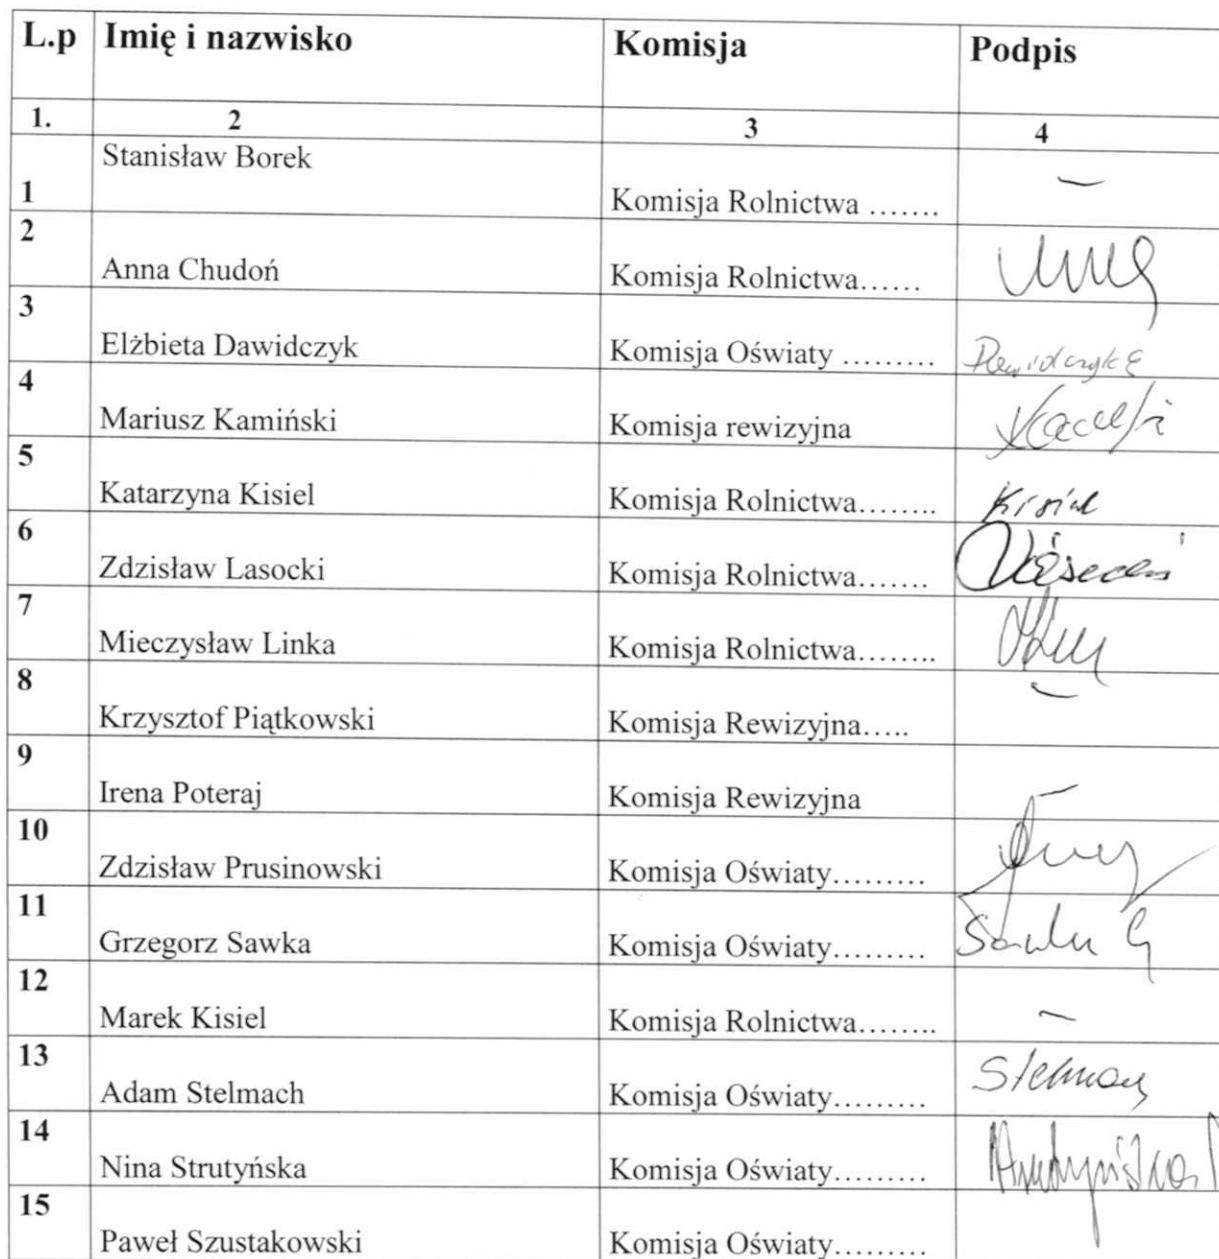 L.p Imię i nazwisko Komisja Podpis
1. 2 3 4
Stanisław Borek
1 Komisja Rolnictwa ……. –
2
Anna Chudoń Komisja Rolnictwa……
3
Elżbieta Dawidczyk Komisja Oświaty ………
4
Mariusz Kamiński Komisja rewizyjna
5
Katarzyna Kisiel Komisja Rolnictwa…….. Kisiel
6
Zdzisław Lasocki Komisja Rolnictwa…….
7
Mieczysław Linka Komisja Rolnictwa……..
8 –
Krzysztof Piątkowski Komisja Rewizyjna…..
9
Irena Poteraj Komisja Rewizyjna –
10
Zdzisław Prusinowski Komisja Oświaty………
11
Grzegorz Sawka Komisja Oświaty……… Sawka G
12
Marek Kisiel Komisja Rolnictwa…….. –
13
Adam Stelmach Komisja Oświaty……… Stelmach
14
Nina Strutyńska Komisja Oświaty………
15
Paweł Szustakowski Komisja Oświaty………